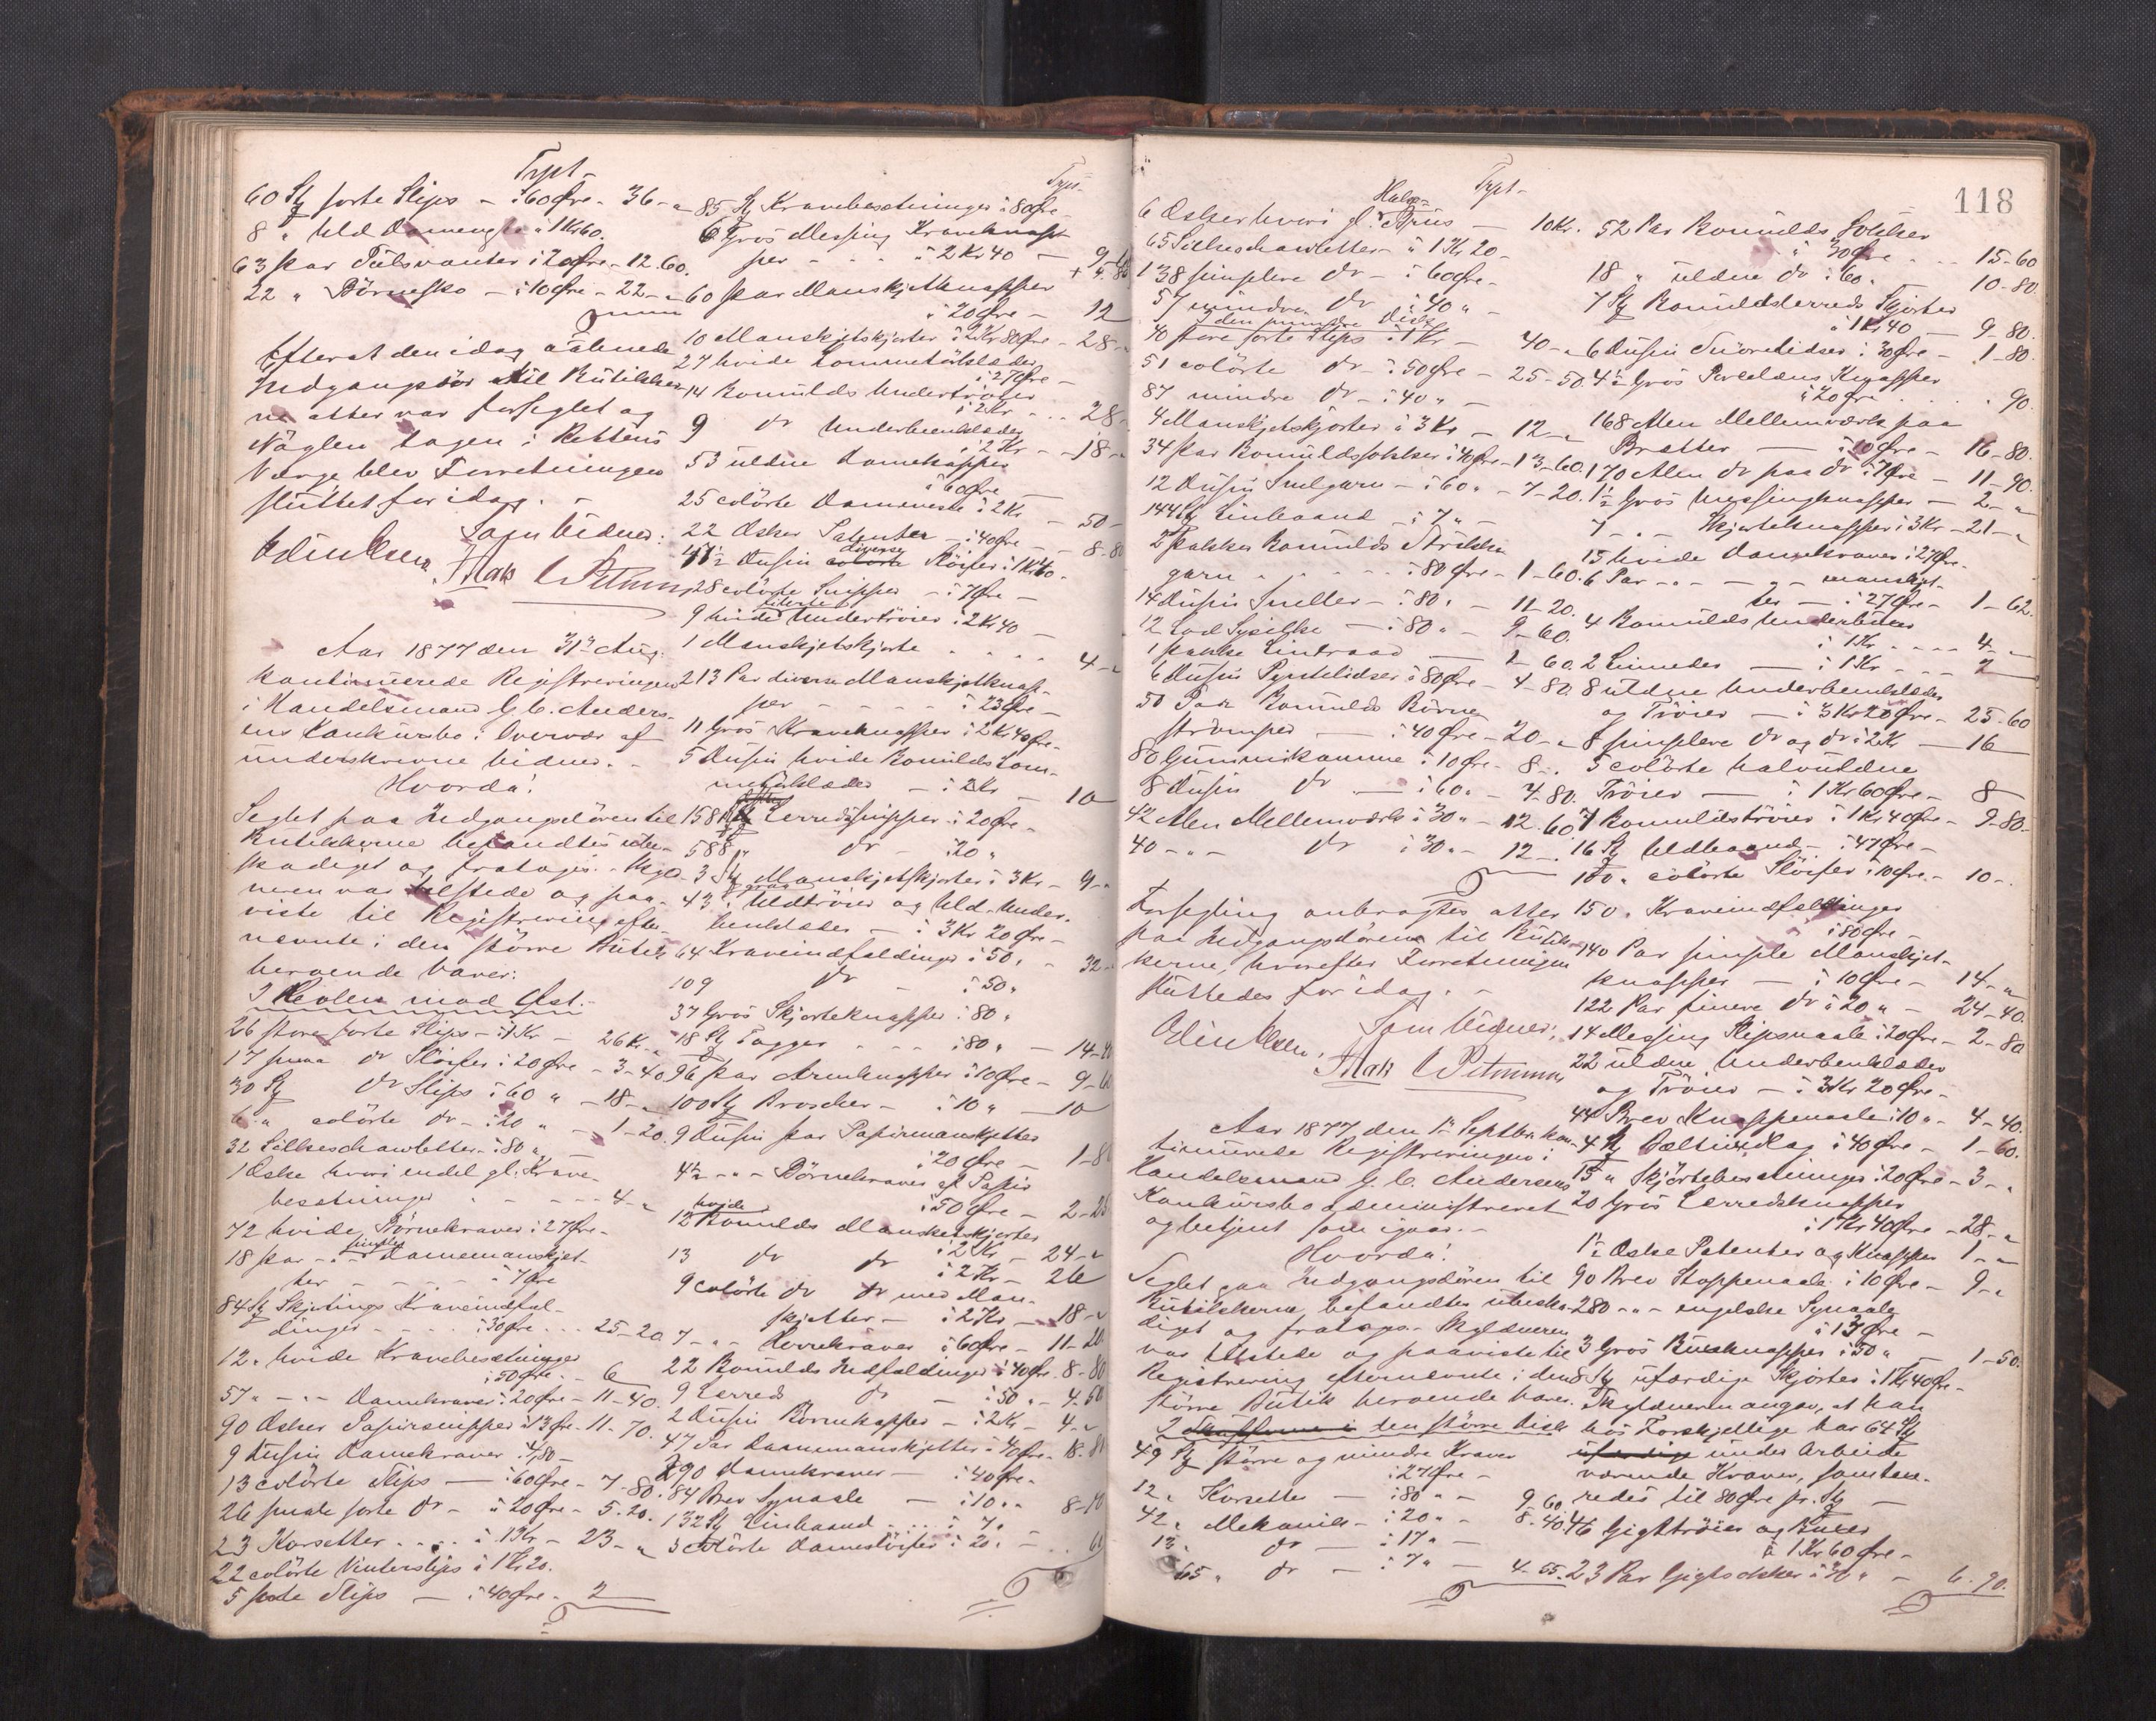 Txpt-
60 St sorte Slips - à 60 Øre - 36-"
8 " Uld Dameng à 1 Kr 60.
63 par Tülsvanter à 20 Øre - 12.60.
22 " Börnesko - à 10 Øre - 22-"
Efterat den idag aabnede
Indgangsdör til Butikker-
ne atter var forseglet og
Nöglen tagen i Rettens
Værge blev Forretningen
sluttet for idag. -
Som Vidner:
Aar 1877 den 31te Aug.
kontinuerede Registreringen
i Handelsmand G. C. Anders-
ens Konkursbo i Overvær af
underskrevne Vidner. -
Hvorda!
Seglet paa Indgangsdören til
Butikkerne befandtes ube-
skadiget og fratoges. Skyld-
neren var tilstede og paa-
viste til Registrering efter-
nævnte i den större Butik
beroende Varer:
I Reolen mod Øst.
26 store sorte Slips - à 1 Kr - 26 Kr.
17 smaa do Slöifer à 20 Øre - 3-40
30 St do Slips à 60 " - 18-"
6 " colörte do - à 20 " - 1-20.
32 Silkeschawletter à 80 "
1 Æske hvori endel gl. Krave-
besetninger - - - - 4-"
72 hvide Börnekraver à 27 Øre-
18 par -"- simple Damemanskjet-
ter - - - - à 7 Øre
84 St Skjetings Kraveindfal-
dinger - - - à 30 Øre - - 25-20
12 " hvide Kravebesetninger
à 50 Øre - 6
57 " -"- Damekraver à 20 Øre - 11-40.
90 Æsker Papirsnipper à 13 Øre - 11-70.
9 Dusin Damekraver 4,80 -
13 colörte Slips - à 60 Øre - 7-80.
26 smale sorte do - à 20 Øre - 5.20.
23 Korsetter - - - à 1 Kr - 23-"
22 colörte Vinterslips à 1 Kr 20.
5 sorte Slips - à 40 Øre - 2
85 St Kravebesetninger à 80 Øre-
6 Gros Messing Kraveknap-
per - - - à 2 Kr 40 -
60 par Manskjetknapper
à 20 Øre - 12
10 Manskjetskjorter à 2 Kr 80 Øre - 28-"
24 hvide Lommetörklæder
à 27 Øre -
14 Bomulds Undertröier
à 2 Kr - - 28-
9 do Underbenklæder
à 2 Kr - 18-"
53 uldne Damekapper
à 60 Øre -
25 colörte Dameveste à 2 Kr - 50-
22 Æsker Patenter - à 40 Øre - 8-80
11½ Dusin colörte diverse Slöifer à 1 Kr 40.
28 colörte Snipper - à 7 Øre -
9 hvide Undertröier à 2 Kr 40 -
1 Manskjetskjorte - - - - 4-"
213 Par diverse Manskjetknap-
per - - - - à 23 Øre -
11 Gros Kraveknapper à 2 Kr 40 Øre-
5 Dusin hvide Bomulds Lom-
metörklæder - à 2 Kr - 10
158 St Lerredssnipper à 20 Øre-
588 " do - à 20 "
3 St Manskjetskjorter à 3 Kr - 9-"
43 " Uldtröier og Uld-Under-
benklæder - à 3 Kr 20 Øre -
64 Kraveindfaldinger à 50 " - 32-"
109 do - à 50 "
37 Gros Skjorteknapper à 80 "
18 St Tagger - - - à 80 " - 14-40
96 par Armknapper à 10 Øre - 9-60
100 St Broscher - à 10 " - 10
9 Dusin par Papirmanskjetter
à 20 Øre - 1-80
4½ -"- Börnekraver af Papir
à 50 Øre - 2-25
12 hvide Bomulds Manskjetskjorter
à 2 Kr - 24-"
13 do do à 2 Kr - 26
9 colörte do do med Man-
skjetter - à 2 Kr - 18-"
7 -"- Herrekraver à 60 Øre - 11-20
22 Bomulds Indfaldinger à 40 Øre. 8-80
9 Lerreds do - à 50 " - 4-50
2 Dusin Börnekapper - à 2 Kr - 4-"
47 Par Damemanskjetter à 40 Øre - 18-80
290 Damekraver - à 40 Øre-
84 Brev Synaale - à 10 " - 8-40
132 St Linbaand - - - à 7 "
3 colörte Dameslöifer à 20 " - 60
118
Txpt-
6 Æsker hvori gl. Hals- Brüs - 10 Kr.
65 Silkeschawletter - à 1 Kr 20 -
138 simplere do - à 60 Øre-
57 mindre do - à 40 " -
I den mindre Disk
40 store sorte Slips - à 1 Kr - 40-"
51 colörte do - à 50 Øre - 25-50.
87 mindre do - à 40 " -
4 Manskjetskjorter à 3 Kr - 12-"
34 par Bomuldssokker à 40 Øre - 13-60.
12 Dusin Snelgarn - à 60 " - 7-20.
144 St Linbaand - à 7 " -
2 pakker Bomulds Strikke
garn - - - - à 80 Øre - 1-60.
14 Dusin Sneller - à 80 " - 11-20.
12 Lod Sysilke - à 80 " - 9-60.
1 pakke Lintraad - 1-60.
6 Dusin Pyntelidser à 80 Øre - 4-80.
50 Par Bomulds Börne
strömper - à 40 Øre - 20-"
80 Gummikamme à 10 Øre - 8-.
8 Dusin do - à 60 " - 4-80.
42 Alen Mellemværk à 30 " - 12.60
40 -"- do à 30 " - 12-.
Forsegling anbragtes atter
paa Indgangsdören til Butik-
kerne, hvorefter Forretningen
sluttedes for idag. -
Som Vidner:
Aar 1877, den 1te Septbr. kon-
tinuerede Registreringen i
Handelsmand G. C. Andersens
Konkursbo administreret
og betjent som igaar. -
Hvorda!
Seglet paa Indgangsdören til
Butikkerne befandtes ubeska-
diget og fratoges. Skyldneren
var tilstede og paaviste til
Registrering efternævnte i den
större Butik beroende Varer.
I Skufferne i den större Disk
49 St större og mindre Kraver
à 27 Øre -
12 " Korsetter - à 80 " - 9-60.
42 " Mekanik - à 20 " - 8.40.
13 " do - à 17 " -
65 " do - à 7 " - 4-55.
52 Par Bomulds Sokker
à 30 Øre - - 15-60
18 " uldne do à 60 " 10-80.
7 St Bomuldslerreds Skjorter
à 1 Kr 40 - 9-80.
6 Dusin Snörelidser à 30 Øre - 1-80.
4½ Gros Porcelæns Knapper
à 20 Øre - - - 90.
168 Alen Mellemværk paa
Bretter - à 10 Øre - 16-80.
170 Alen do paa do à 7 Øre - 11-90.
1½ Gros Messingknapper - 2-"
7 -"- Skjorteknapper à 3 Kr - 21-"
15 hvide Damekraver à 27 Øre-
6 Par -"- -"- manskjet-
ter - à 27 Øre - 1-62.
4 Bomulds Underbuxer
à 1 Kr - - - 4-"
2 Linneder - à 1 Kr - - 2
8 uldne Underbenklæder
og Tröier - à 3 Kr 20 Øre - 25-60
8 simplere do og do à 2 Kr - 16
5 colörte halvuldne
Tröier - à 1 Kr 60 Øre - 8
7 Bomuldströier à 1 Kr 40 Øre - 9-80-
16 St Uldbaand - à 47 Øre -
100 " colörte Slöifer à 10 Øre - 10-.
150 " Kraveindfaldninger
à 80 Øre -
140 Par simple Manskjet-
knapper - à 10 Øre - 14-"
122 Par finere do à 20 " - 24-40
14 Messing Slipsnaale à 20 Øre - 2-80
22 uldne Underbenklæder
og Tröier - à 3 Kr 20 Øre-
44 Brev Knappenaale à 10 " - 4-40.
4 St Bælteindlag à 40 Øre - 1-60.
15 " Skjortebesetninger à 20 Øre - 3-"
20 Gros Lerredsknapper
à 1 Kr 40 Øre - 28-"
1½ Æske Patenter og Knapper 1-"
90 Brev Stoppenaale à 10 Øre - 9-"
280 -"- engelske Synaale
à 13 Øre -
3 Gros Buxeknapper à 50 " - 1-50.
8 St ufærdige Skjorter à 1 Kr 40 Øre-
Skyldneren angav, at han
hos Forskjellige har 64 St
ufærdige under Arbeide
værende Kraver, som taxe-
redes til 80 Øre pr. St -
46 Gigttröier og Buxer
à 1 Kr 60 Øre -
23 Par Gigtsokker à 30 " - 6.90.